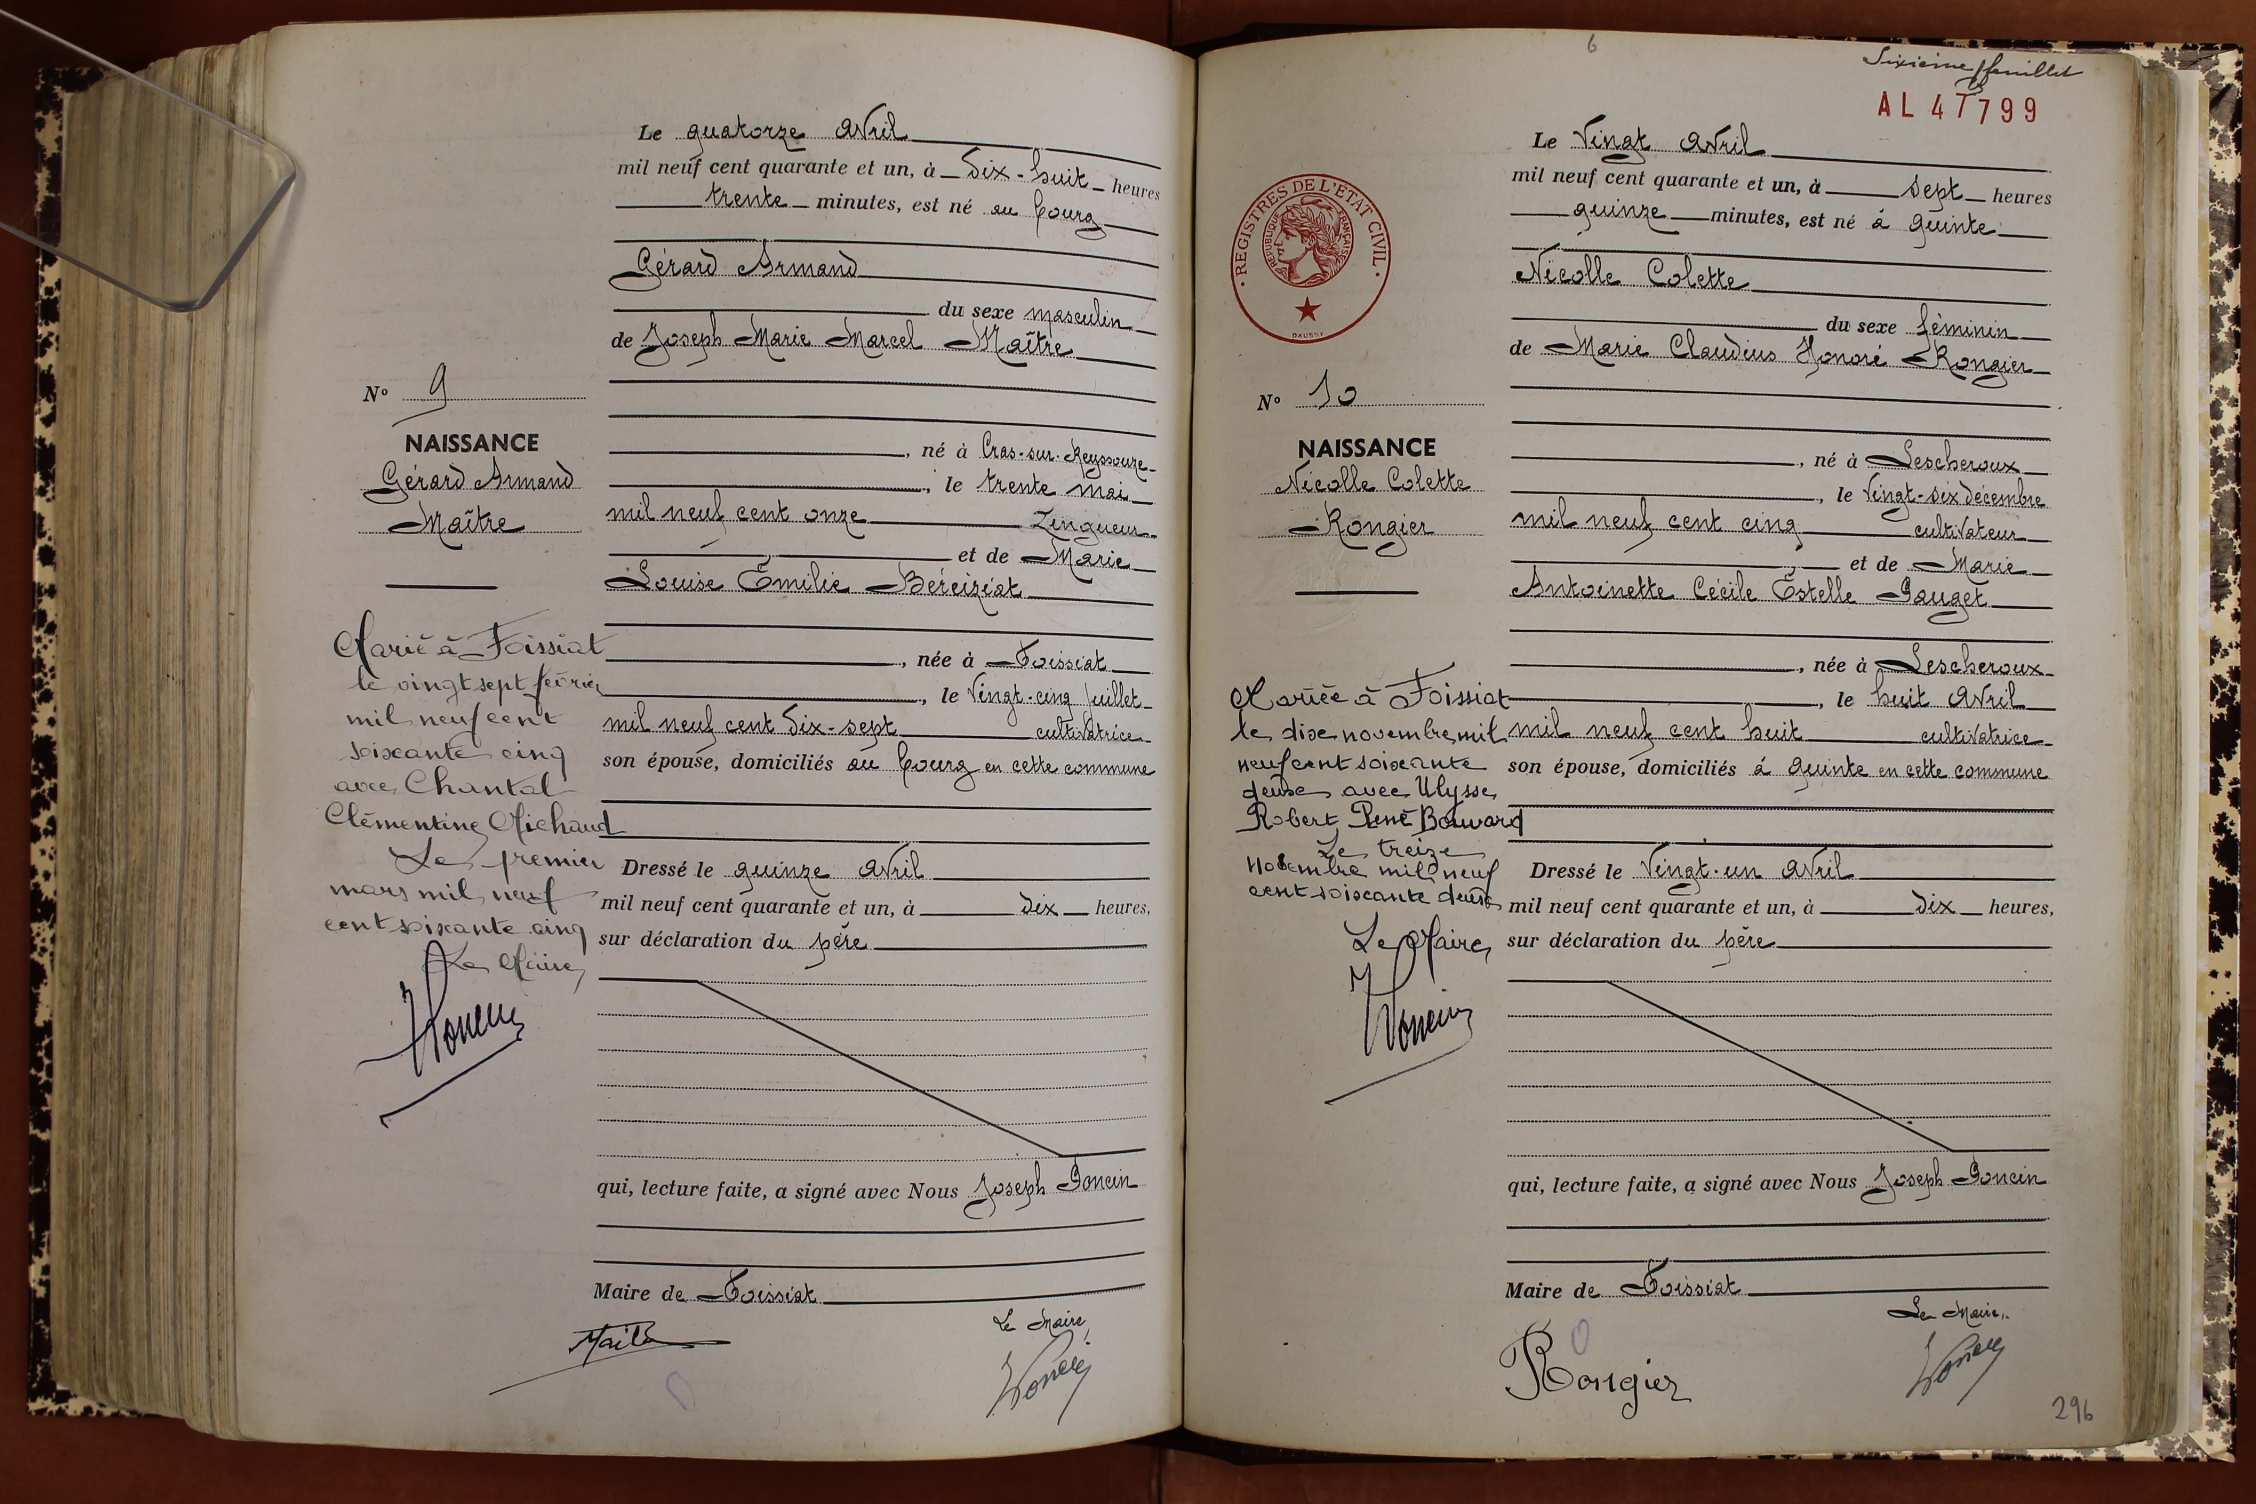 Le quatorze avril
mil neuf cent quarante et un, à dix-huit heures
trente minutes, est né au bourg
Gérard Armand
du sexe masculin
de Joseph Marie Marcel Maître
N° 9
NAISSANCE
Gérard Armand
Maître
, né à Cras-sur-Reyssouze
, le trente mai
mil neuf cent onze zingueur
et de Marie
Louise Emilie Béreiziat
, née à Foissiat
, le vingt-cinq juillet
mil neuf cent dix-sept cultivatrice
son épouse, domiciliés au bourg en cette commune
Marié à Foissiat
le vingt sept février
mil neuf cent
soixante cinq
avec Chantal
Clémentine Michaud
Le premier
mars mil neuf
cent soixante cinq
Le Maire
Poncin
Dressé le quinze avril
mil neuf cent quarante et un, à dix heures,
sur déclaration du père
qui, lecture faite, a signé avec Nous Joseph Poncin
Maire de Foissiat
Le Maire,
Poncin
6
Sixième feuillet
AL 47799
Le vingt avril
mil neuf cent quarante et un, à sept heures
quinze minutes, est né à Quinte
Nicolle Colette
du sexe féminin
de Marie Claudius Honoré Rongier
REGISTRES DE L'ETAT CIVIL
REPUBLIQUE FRANÇAISE
DAUSSY
N° 10
NAISSANCE
Nicolle Colette
Rongier
, né à Lescheroux
, le vingt-six décembre
mil neuf cent cinq cultivateur
et de Marie
Antoinette Cécile Estelle Pauget
, née à Lescheroux
, le huit avril
mil neuf cent huit cultivatrice
son épouse, domiciliés à Quinte en cette commune
Mariée à Foissiat
le dix novembre mil
neuf cent soixante
deux avec Ulysse
Robert René Bouvard
Le treize
novembre mil neuf
cent soixante deux
Le Maire
Poncin
Dressé le vingt-un avril
mil neuf cent quarante et un, à dix heures,
sur déclaration du père
qui, lecture faite, a signé avec Nous Joseph Poncin
Maire de Foissiat
Le Maire,
Rongier
Poncin
296